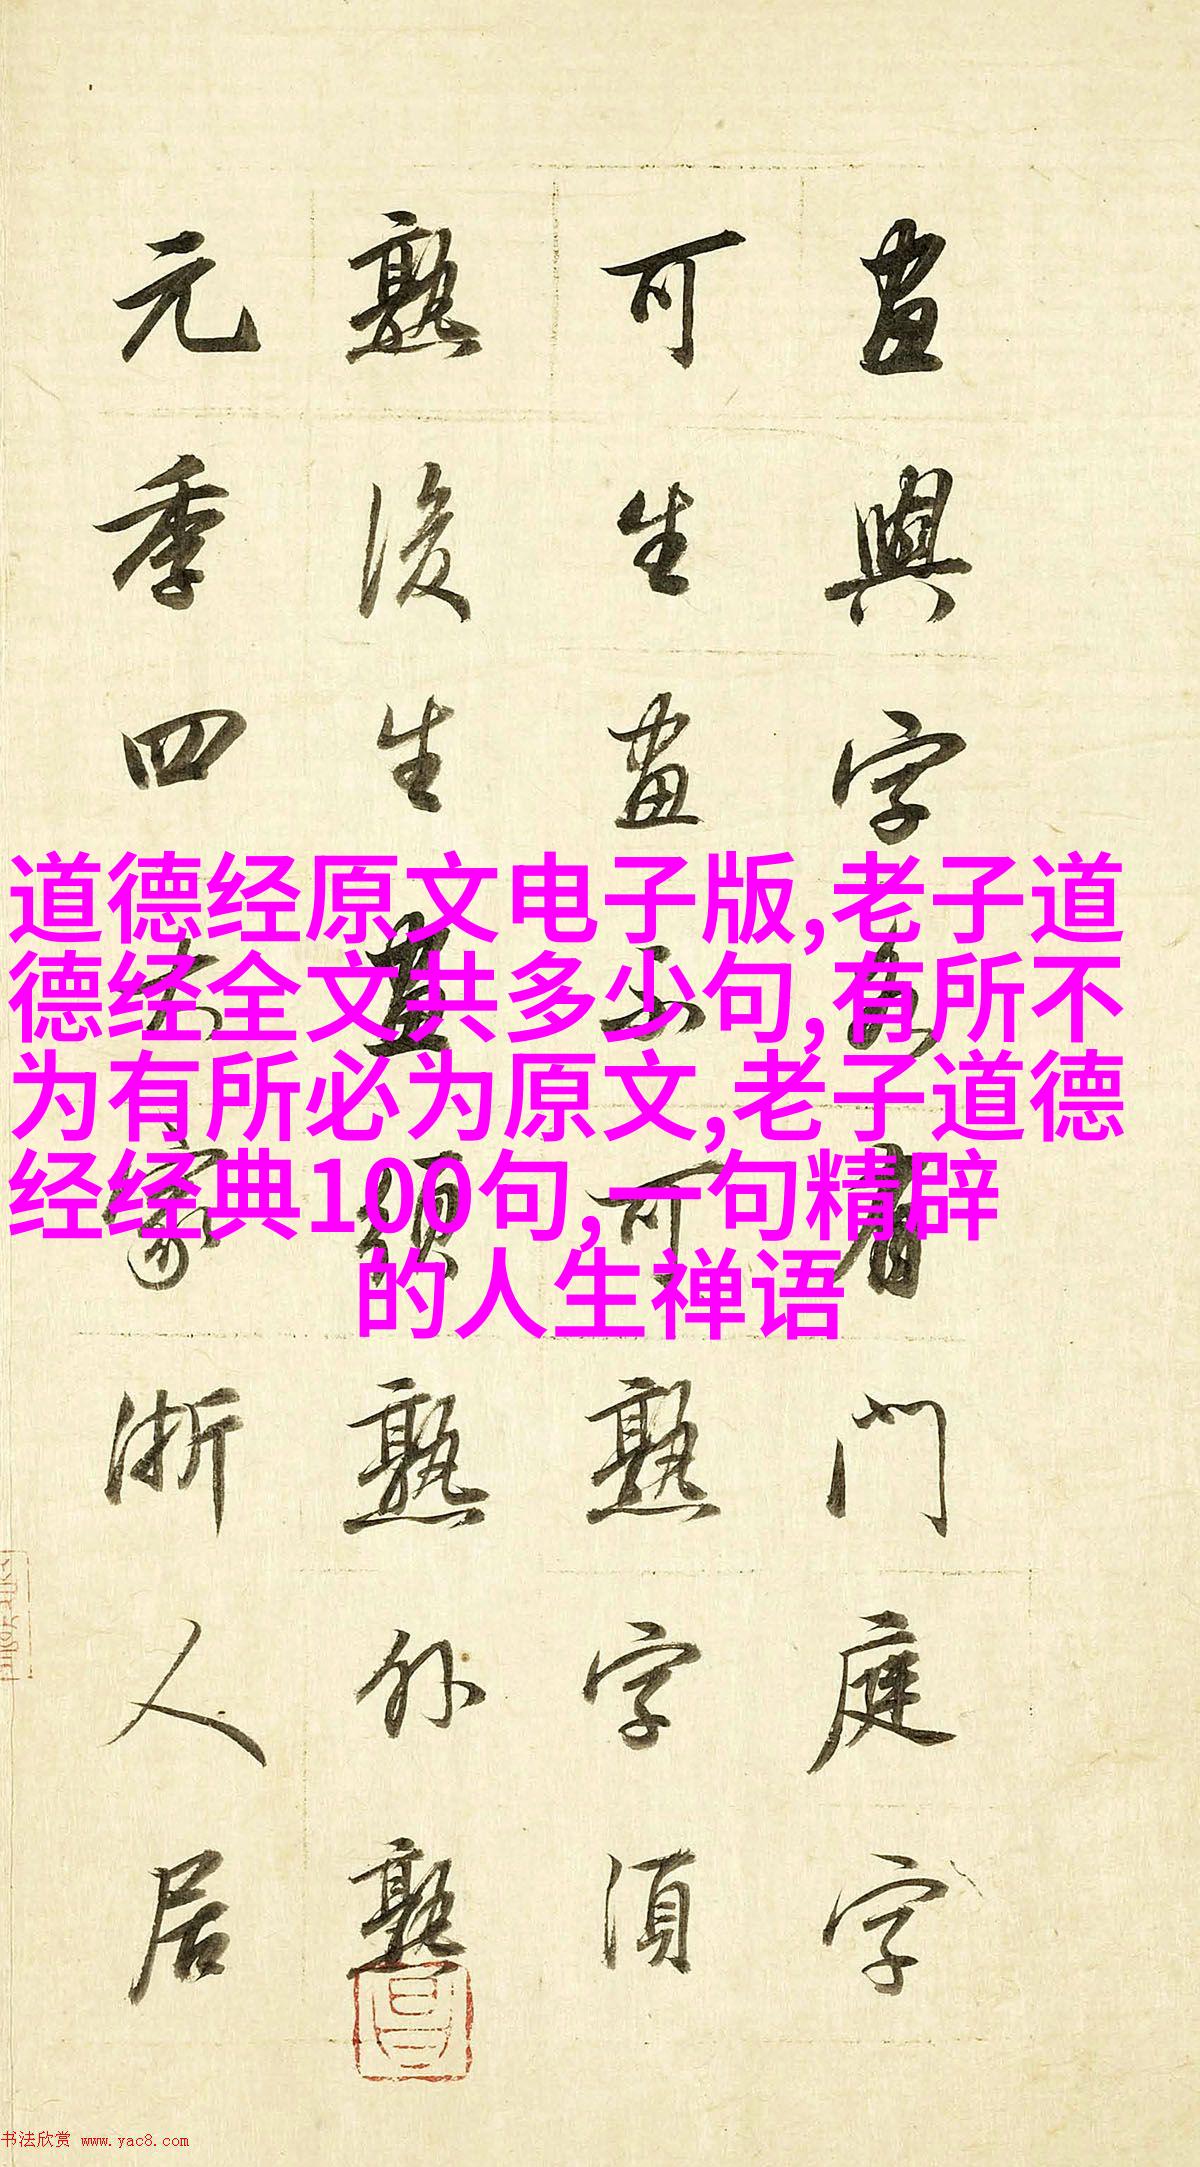 畫與字各有門庭字
可生畫不可熟字須
熟後生畫須熟外熟
元季四大家浙人居
道德经原文电子版,老子道
德经全文共多少句,有所不
为有所必为原文,老子道德
经经典100句,一句精辟
的人生禅语
书法欣赏 www.yac8.com